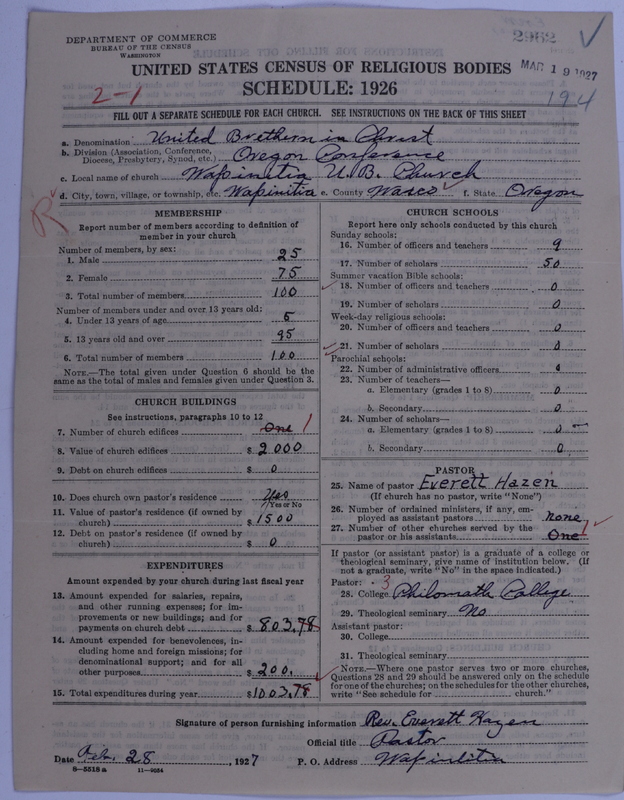 DEPARTMENT OF COMMERCE
BUREAU OF THE CENSUS
WASHINGTON
2962
MAR 19 1927
194
UNITED STATES CENSUS OF RELIGIOUS BODIES
2-1
SCHEDULE: 1926
FILL OUT A SEPARATE SCHEDULE FOR EACH CHURCH. SEE INSTRUCTIONS ON THE BACK OF THIS SHEET
a. Denomination United Brethern in Christ
b. Division (Association, Conference, Diocese, Presbytery, Synod, etc.) Oregon Conference
c. Local name of church Wapinitia U.B. Church
d. City, town, village, or township, etc. Wapinitia e. County Wasco f. State Oregon
R
MEMBERSHIP
Report number of members according to definition of
member in your church
Number of members, by sex:
1. Male 25
2. Female 75
3. Total number of members 100
Number of members under and over 13 years old:
4. Under 13 years of age 5
5. 13 years old and over 95
6. Total number of members 100
NOTE.—The total given under Question 6 should be
same as the total of males and females given under Question 3.
CHURCH BUILDINGS
See instructions, paragraphs 10 to 12
7. Number of church edifices One 1
8. Value of church edifices $ 2000
9. Debt on church edifices $ 0
10. Does church own pastor's residence Yes
Yes or No
11. Value of pastor's residence (if owned by
church) $ 1500
12. Debt on pastor's residence (if owned by
church) $ 0
EXPENDITURES
Amount expended by your church during last fiscal year
13. Amount expended for salaries, repairs,
and other running expenses; for im-
provements or new buildings; and for
payments on church debt $ 803.78
14. Amount expended for benevolences, in-
cluding home and foreign missions; for
denominational support; and for all
other purposes $ 200.
15. Total expenditures during year $ 1003.78
CHURCH SCHOOLS
Report here only schools conducted by this church
Sunday schools:
16. Number of officers and teachers 9
17. Number of scholars 50
Summer vacation Bible schools:
18. Number of officers and teachers 0
19. Number of scholars 0
Week-day religious schools:
20. Number of officers and teachers 0
21. Number of scholars 0
Parochial schools:
22. Number of administrative officers 0
23. Number of teachers—
a. Elementary (grades 1 to 8) 0
b. Secondary 0
24. Number of scholars—
a. Elementary (grades 1 to 8) 0
b. Secondary 0
PASTOR
25. Name of pastor Everett Hazen
(If church has no pastor, write "None")
26. Number of ordained ministers, if any, em-
ployed as assistant pastors none
27. Number of other churches served by the
pastor or his assistants One 1
If pastor (or assistant pastor) is a graduate of a college or
theological seminary, give name of institution below. (If
not a graduate, write "No" in the space indicated.)
Pastor: 3
28. College Philomath College
29. Theological seminary No
Assistant pastor:
30. College
31. Theological seminary
NOTE.—Where one pastor serves two or more churches,
Questions 28 and 29 should be answered only on the schedule
for one of the churches; on the schedules for the other churches,
write "See schedule for church."
Signature of person furnishing information Rev. Everett Hazen
Official title Pastor
Date Feb. 28, 1927 P. O. Address Wapinitia
8—5518 a 11—9054